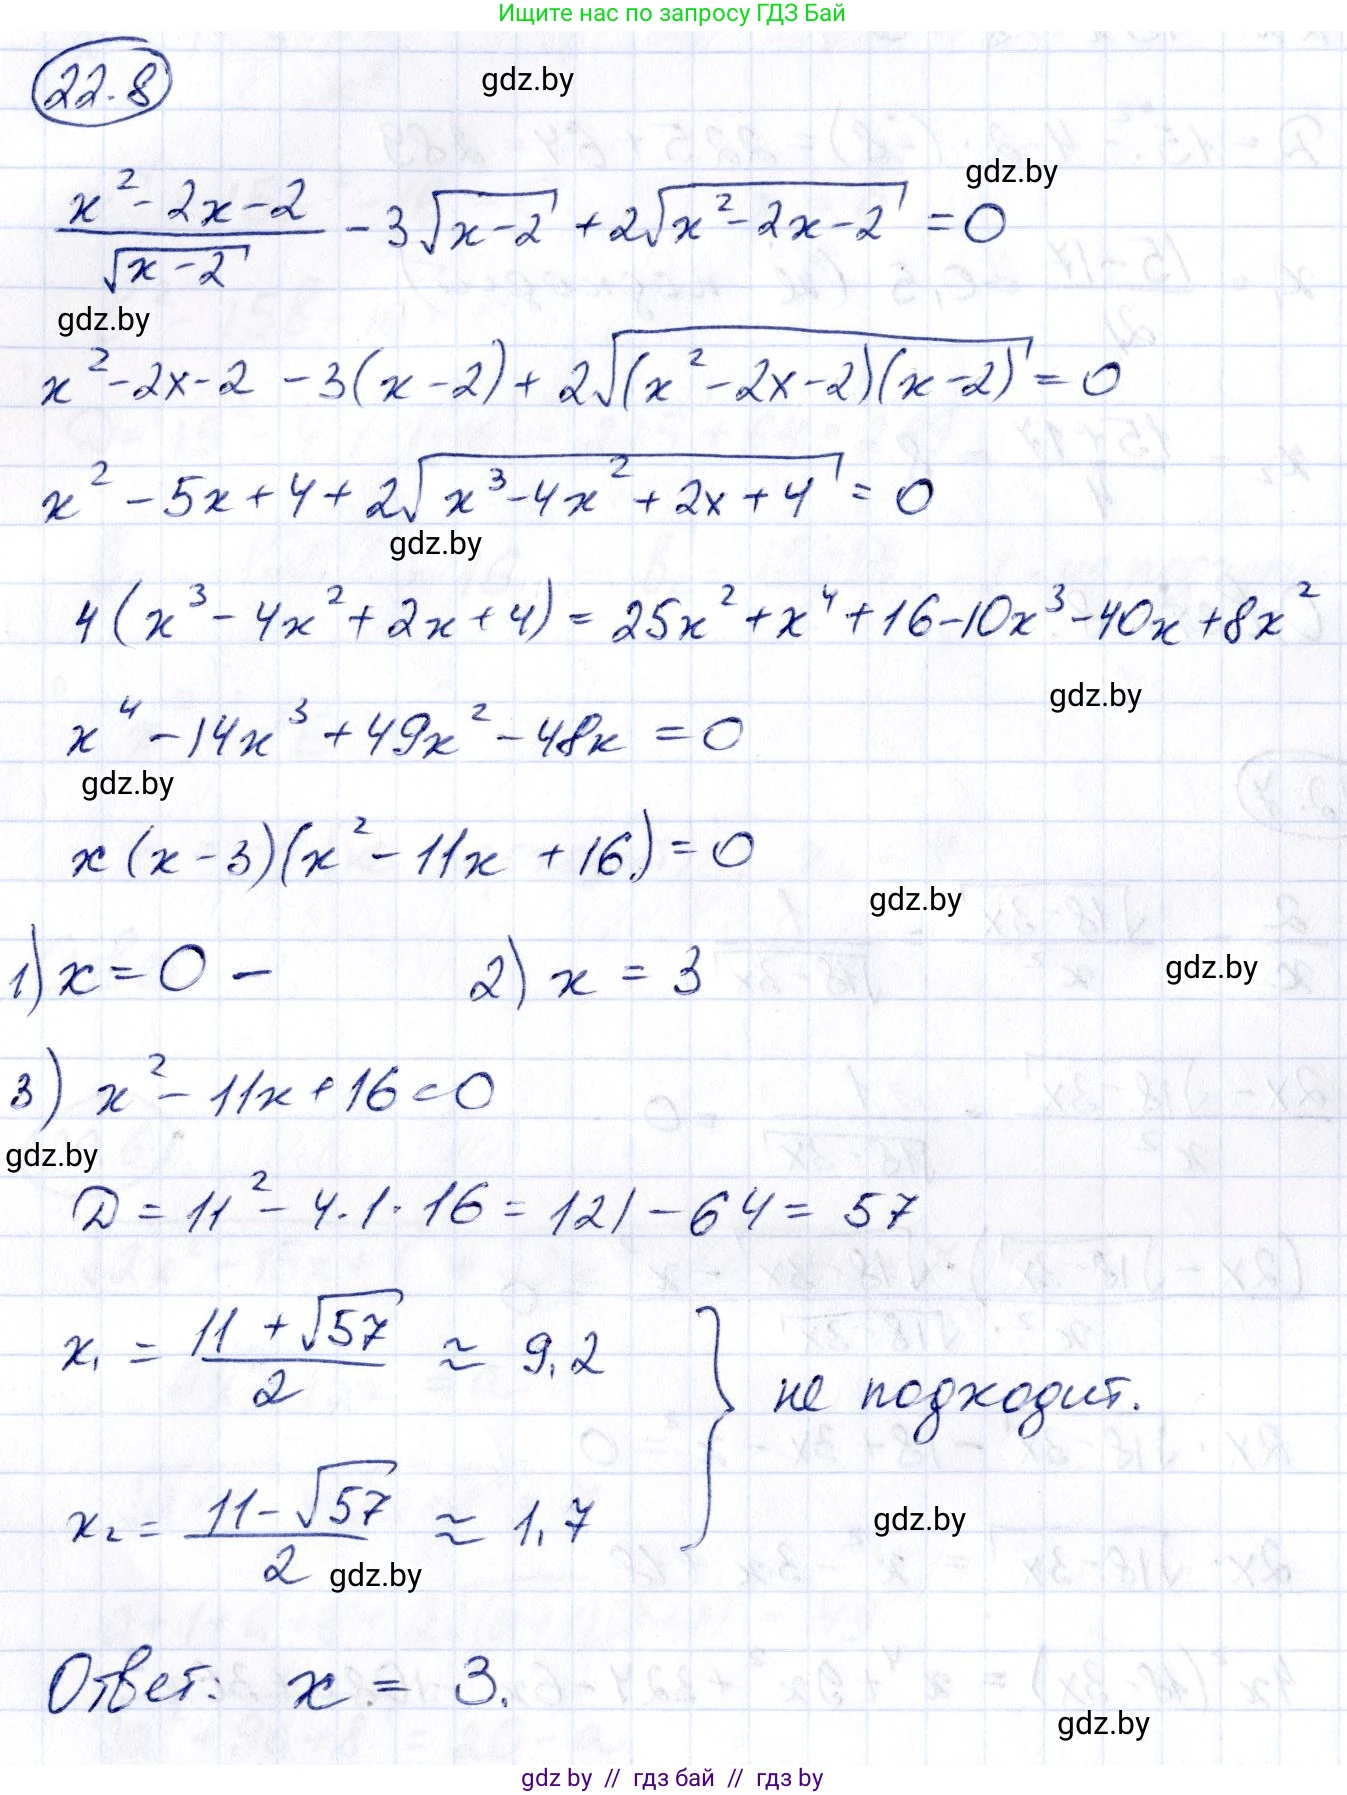 Ищите нас по запросу ГДЗ Бай
22.8
gdz.by
gdz.by
(x² - 2x - 2)/√(x-2) - 3√(x-2) + 2√(x² - 2x - 2) = 0
gdz.by
x² - 2x - 2 - 3(x-2) + 2√((x² - 2x - 2)(x-2)) = 0
x² - 5x + 4 + 2√(x³ - 4x² + 2x + 4) = 0
gdz.by
4(x³ - 4x² + 2x + 4) = 25x² + x⁴ + 16 - 10x³ - 40x + 8x²
gdz.by
x⁴ - 14x³ + 49x² - 48x = 0
gdz.by
x(x-3)(x² - 11x + 16) = 0
gdz.by
1) x = 0 - 2) x = 3
gdz.by
3) x² - 11x + 16 = 0
gdz.by
D = 11² - 4·1·16 = 121 - 64 = 57
x₁ = (11 + √57)/2 ≈ 9,2
} не подходит.
x₂ = (11 - √57)/2 ≈ 1,7
gdz.by
gdz.by
Ответ: x = 3.
gdz.by
gdz by // гдз бай // гдз by